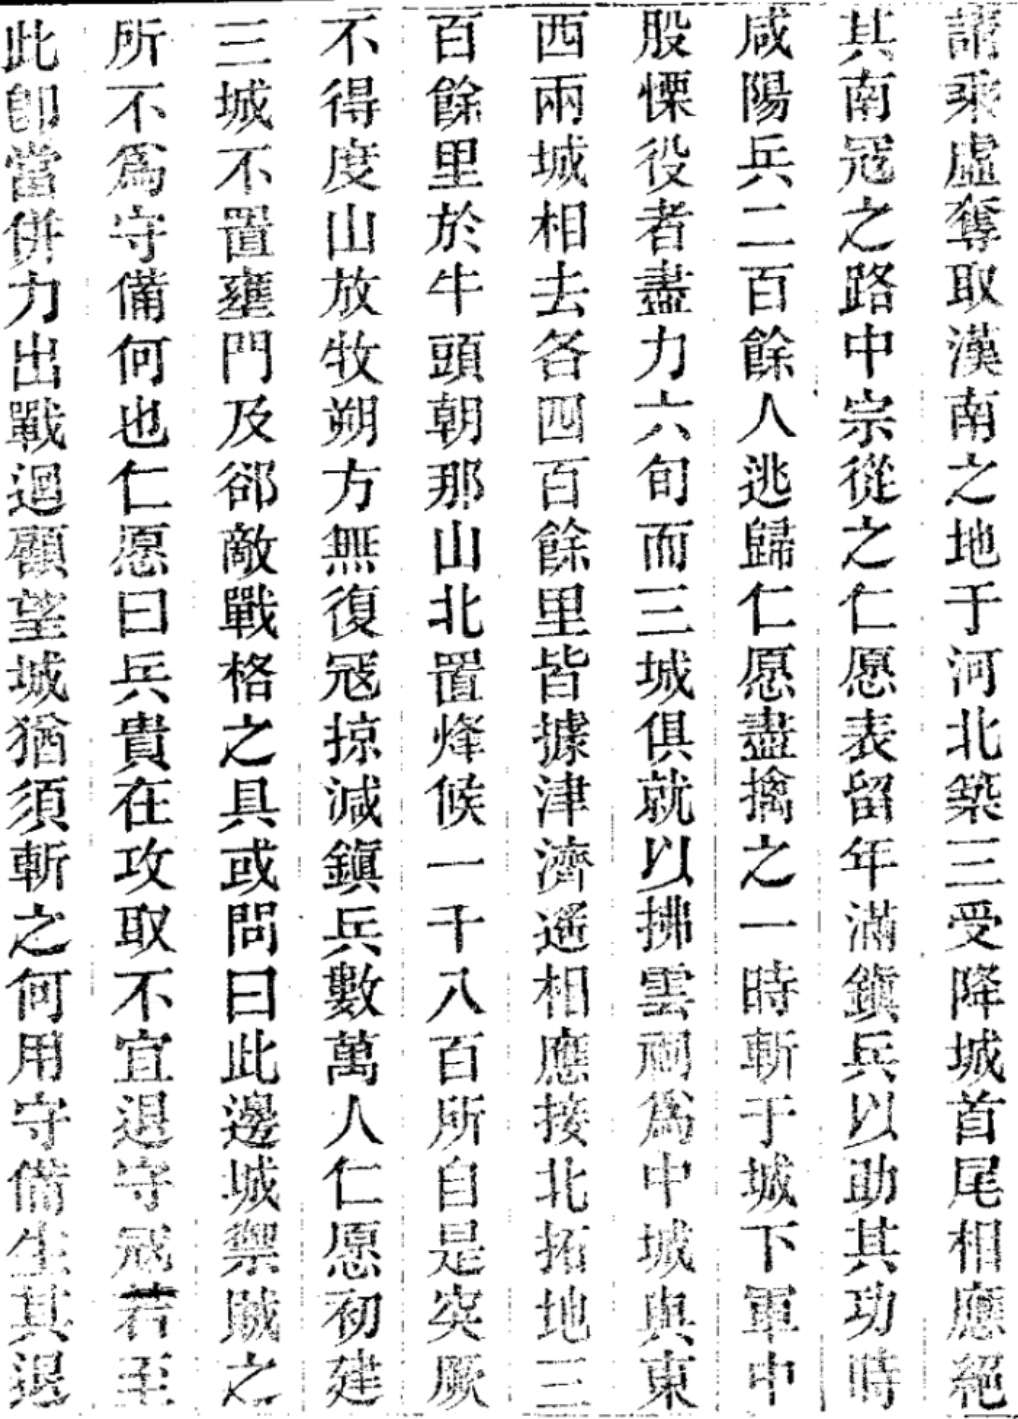 請乘虛奪取漢南之地于河北築三受降城首尾相應絕
其南冦之路中宗從之仁愿表留年滿鎮兵以助其功時
咸陽兵二百餘人逃歸仁愿盡擒之一時斬于城下軍中
股慄役者盡力六旬而三城俱就以拂雲祠爲中城與東
西兩城相去各四百餘里皆據津濟遥相應接北拓地三
百餘里於牛頭朝那山北置烽候一千八百所自是突厥
不得度山放牧朔方無復冦掠減鎮兵數萬人仁愿初建
三城不置壅門及郤敵戰格之具或問曰此邊城禦賊之
所不爲守備何也仁愿曰兵貴在攻取不宜退守冦若至
此卽當併力出戰迴顧望城猶須斬之何用守備生其退